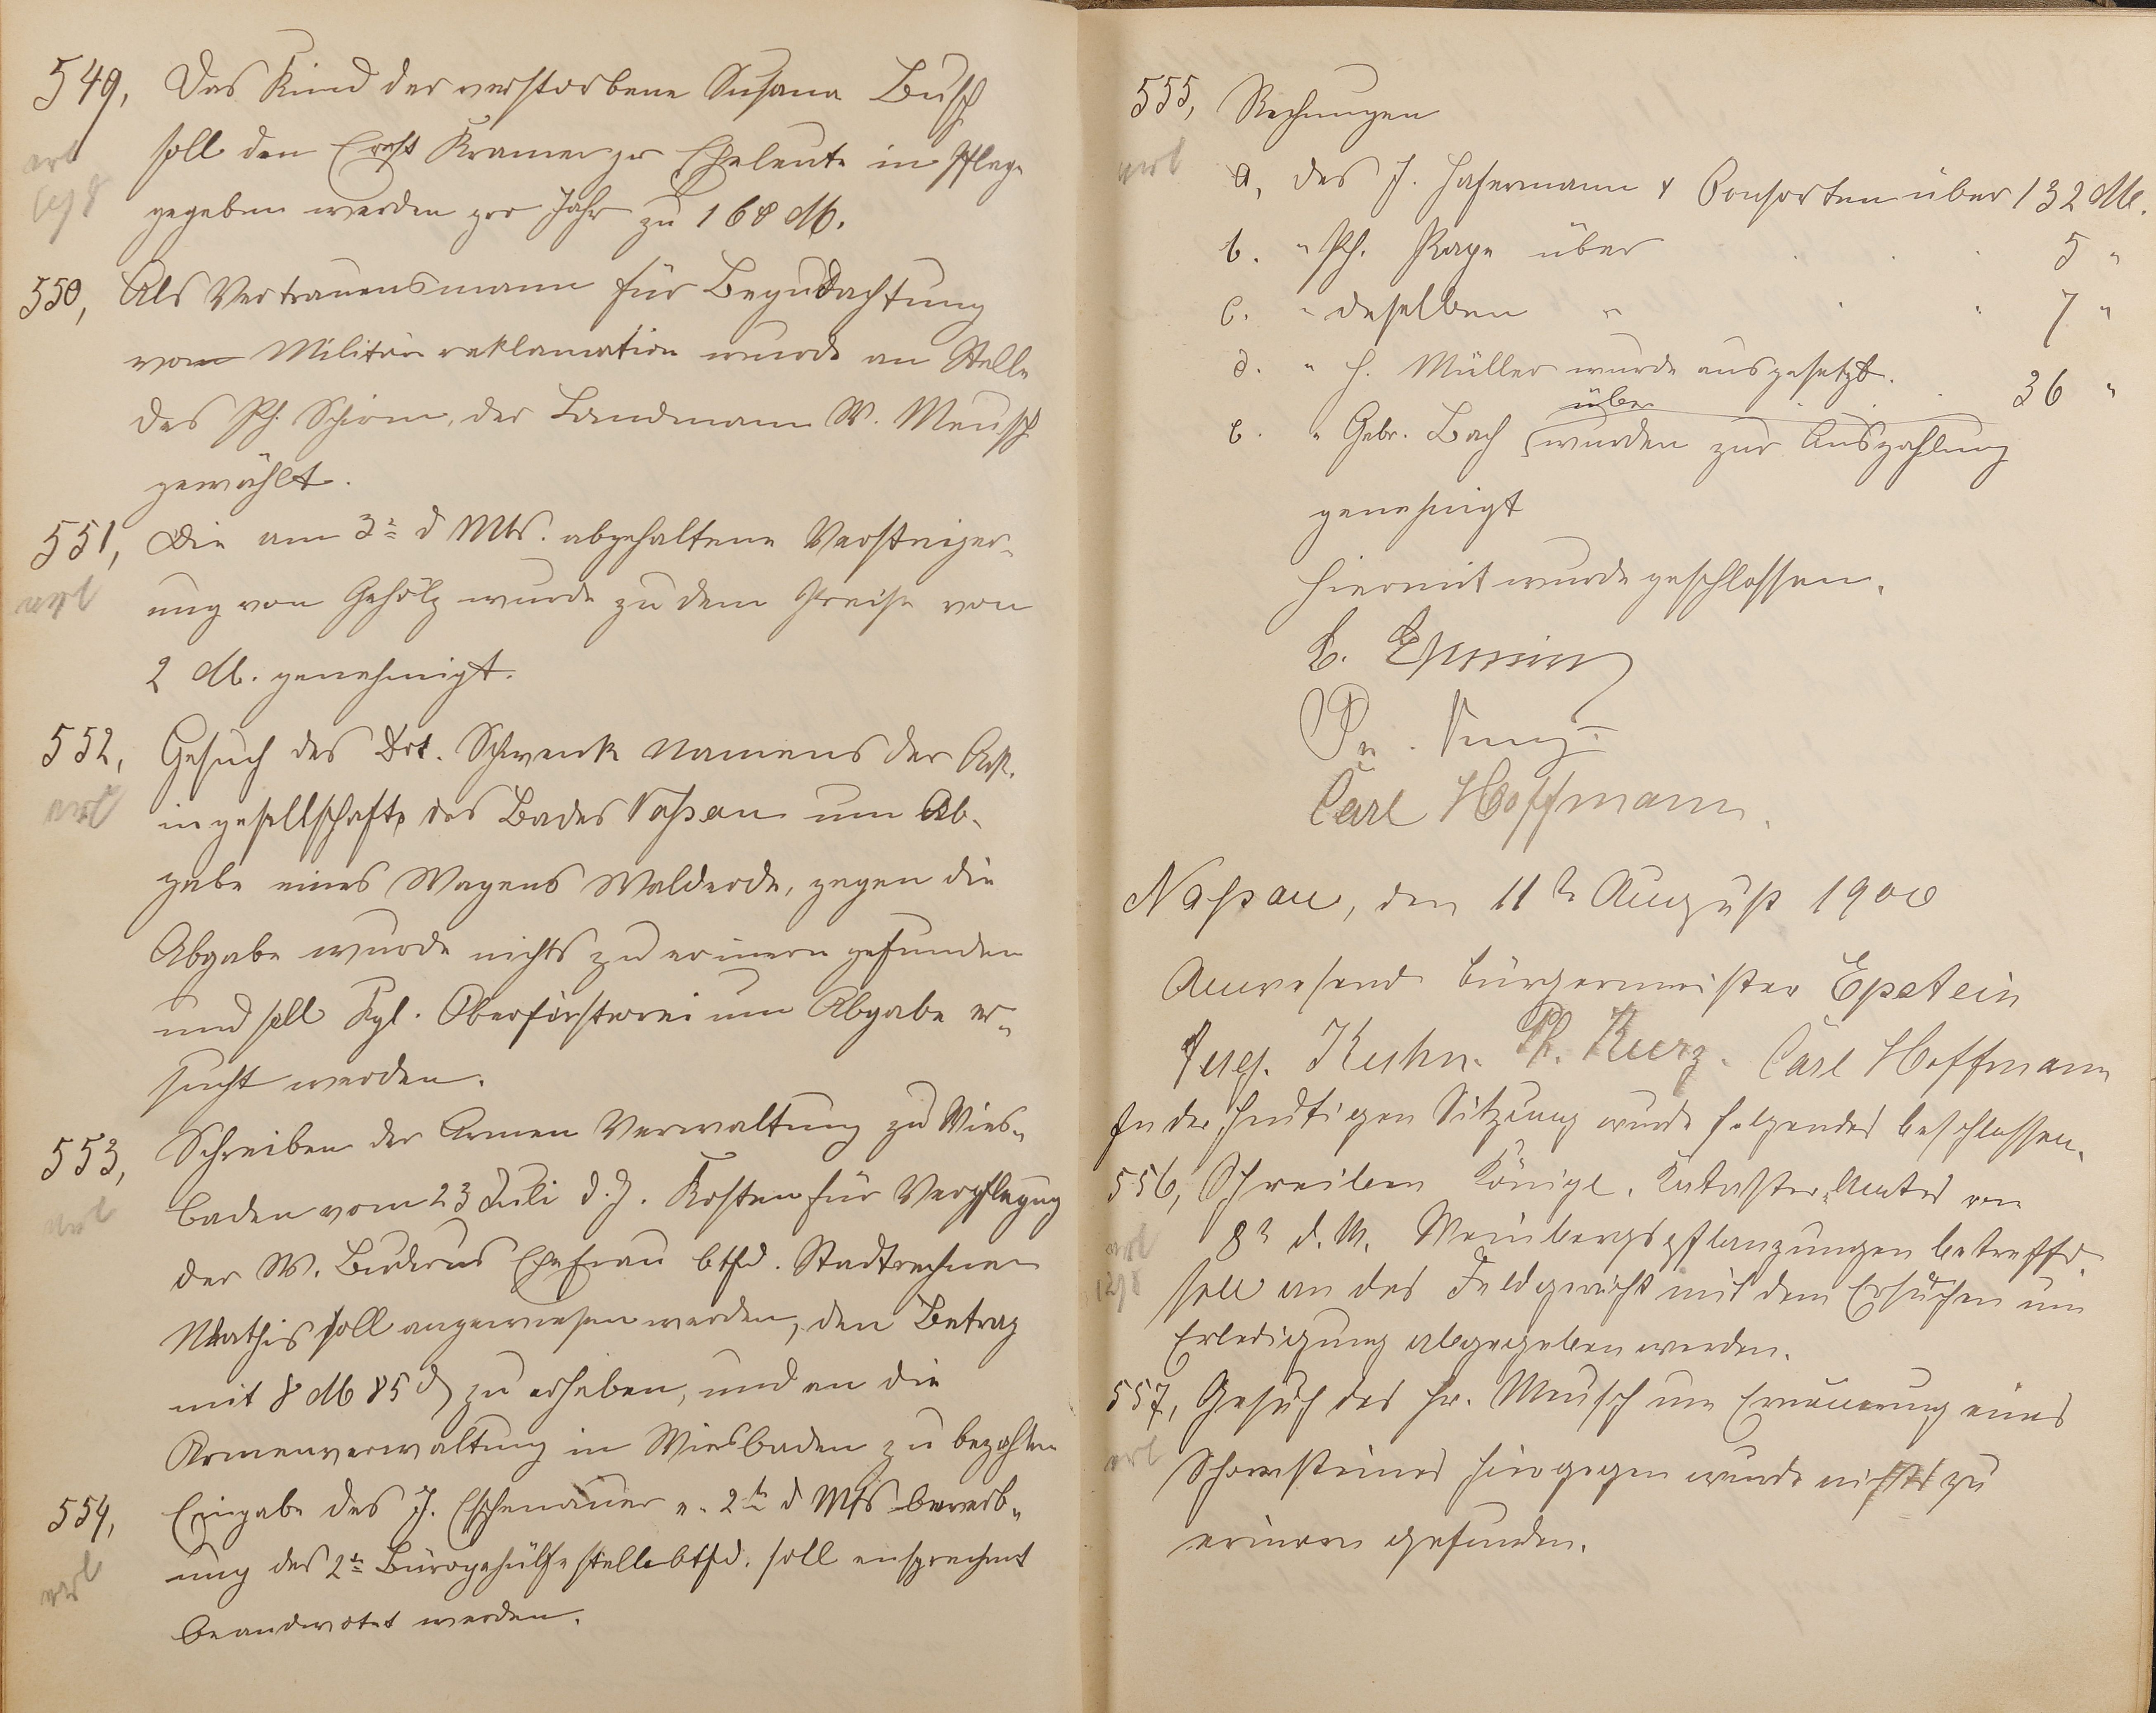 549, Das Kind der verstorbene Susana Busch
erl soll den Ernst Kramer jr Eheleute in Pflege
gegeben werden pro Jahr zu 168 M.
550, Als Vertrauensmann für Begudachtung
vom Militärreklamation wurde an Stelle
des Ph. Schirm, der Landmann W. Meusch
gewählt.
551, Die am 3n d Mts. abgehaltene Versteiger-
erl ung von Gehölz wurde zu dem Preise von
2 M. genehmigt.
552, Gesuch des Dct. Schwenk Namens der Akt.
erl ingesellschaft des Bades Naßau um Ab-
gabe eines Wagens Walderde, gegen die
Abgabe wurde nichts zu erinern gefunden
und soll Kgl. Oberförsterei um Abgabe er-
sucht werden.
553, Schreiben der Armen Verwaltung zu Wies-
erl baden vom 23 Juli d. J. Kosten für Verpflegung
der W. Buderus Ehefrau btfd. Stadtrechner
Mathis soll angewiesen werden, den Betrag
mit 8 M 85 d zu erheben, und an die
Armenverwaltung in Wiesbaden zu bezahlen
554, Eingabe des J. Eschenauer v. 2tn d Mts bewerb-
erl ung des 2tn Bürogehülfestelle btfd. soll ensprechent
beandwotet werden.
555, Rechnungen
erl a, des J. Hasermann & Consorten über 132 M.
b. " Ph. Rage über . . 5 "
c. " deselben " . . 7 "
d. " H. Müller wurde ausgesetzt.
e. " Gebr. Bach über . . . 36 "
wurden zur Auszahlung
genehmigt
Hiermit wurde geschlossen.
Carl Hoffmann.
Naßau, den 11t August 1900
Anwesend Bürgermeister Epstein
Aug. Kuhn. Ph. Kurz. Carl Hoffmann
In der heutigen Sitzung wurde folgendes beschlossen.
556, Schreiben Königl. Kataster-Amtes vom
erl 8n d. M. Weinbergspflanzungen betreffd.
12/8 soll an das Feldgericht mit dem Ersuchen um
Erledigung abgegeben werden.
557, Gesuch des Hr. Meusch um Erneuerung eines
erl Schornsteines hiergegen wurde nichts zu
erinern gefunden.